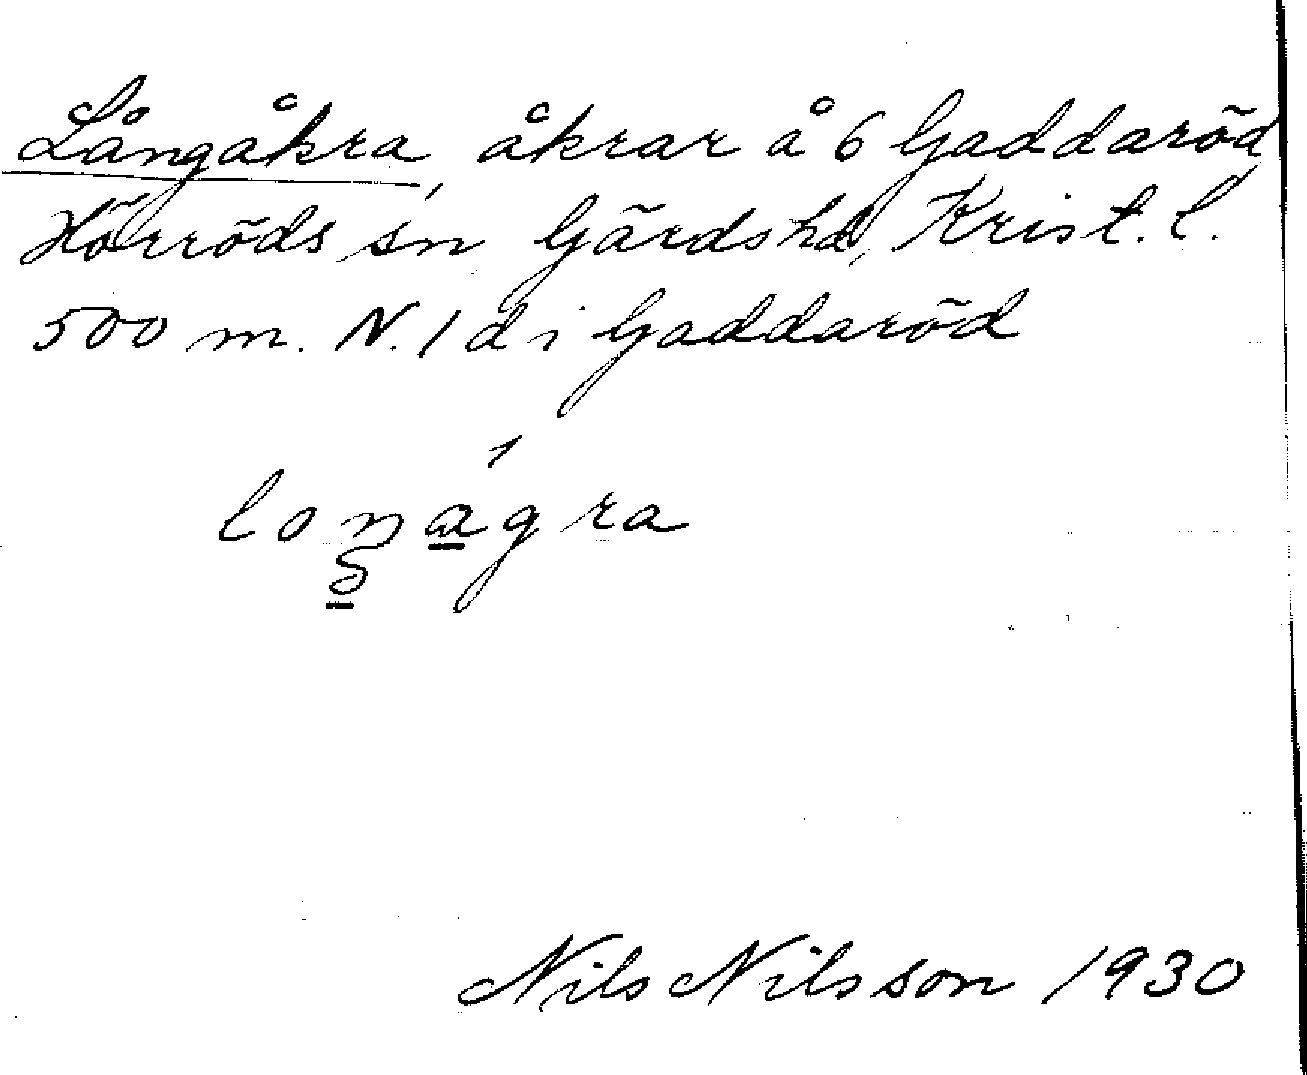 Långåkra, åkrar å 6 Gaddaröd,
Hörröds sn Gärds hd, Krist. l.
500 m. N. 1 d i Gaddaröd
loŋágra
Nils Nilsson 1930